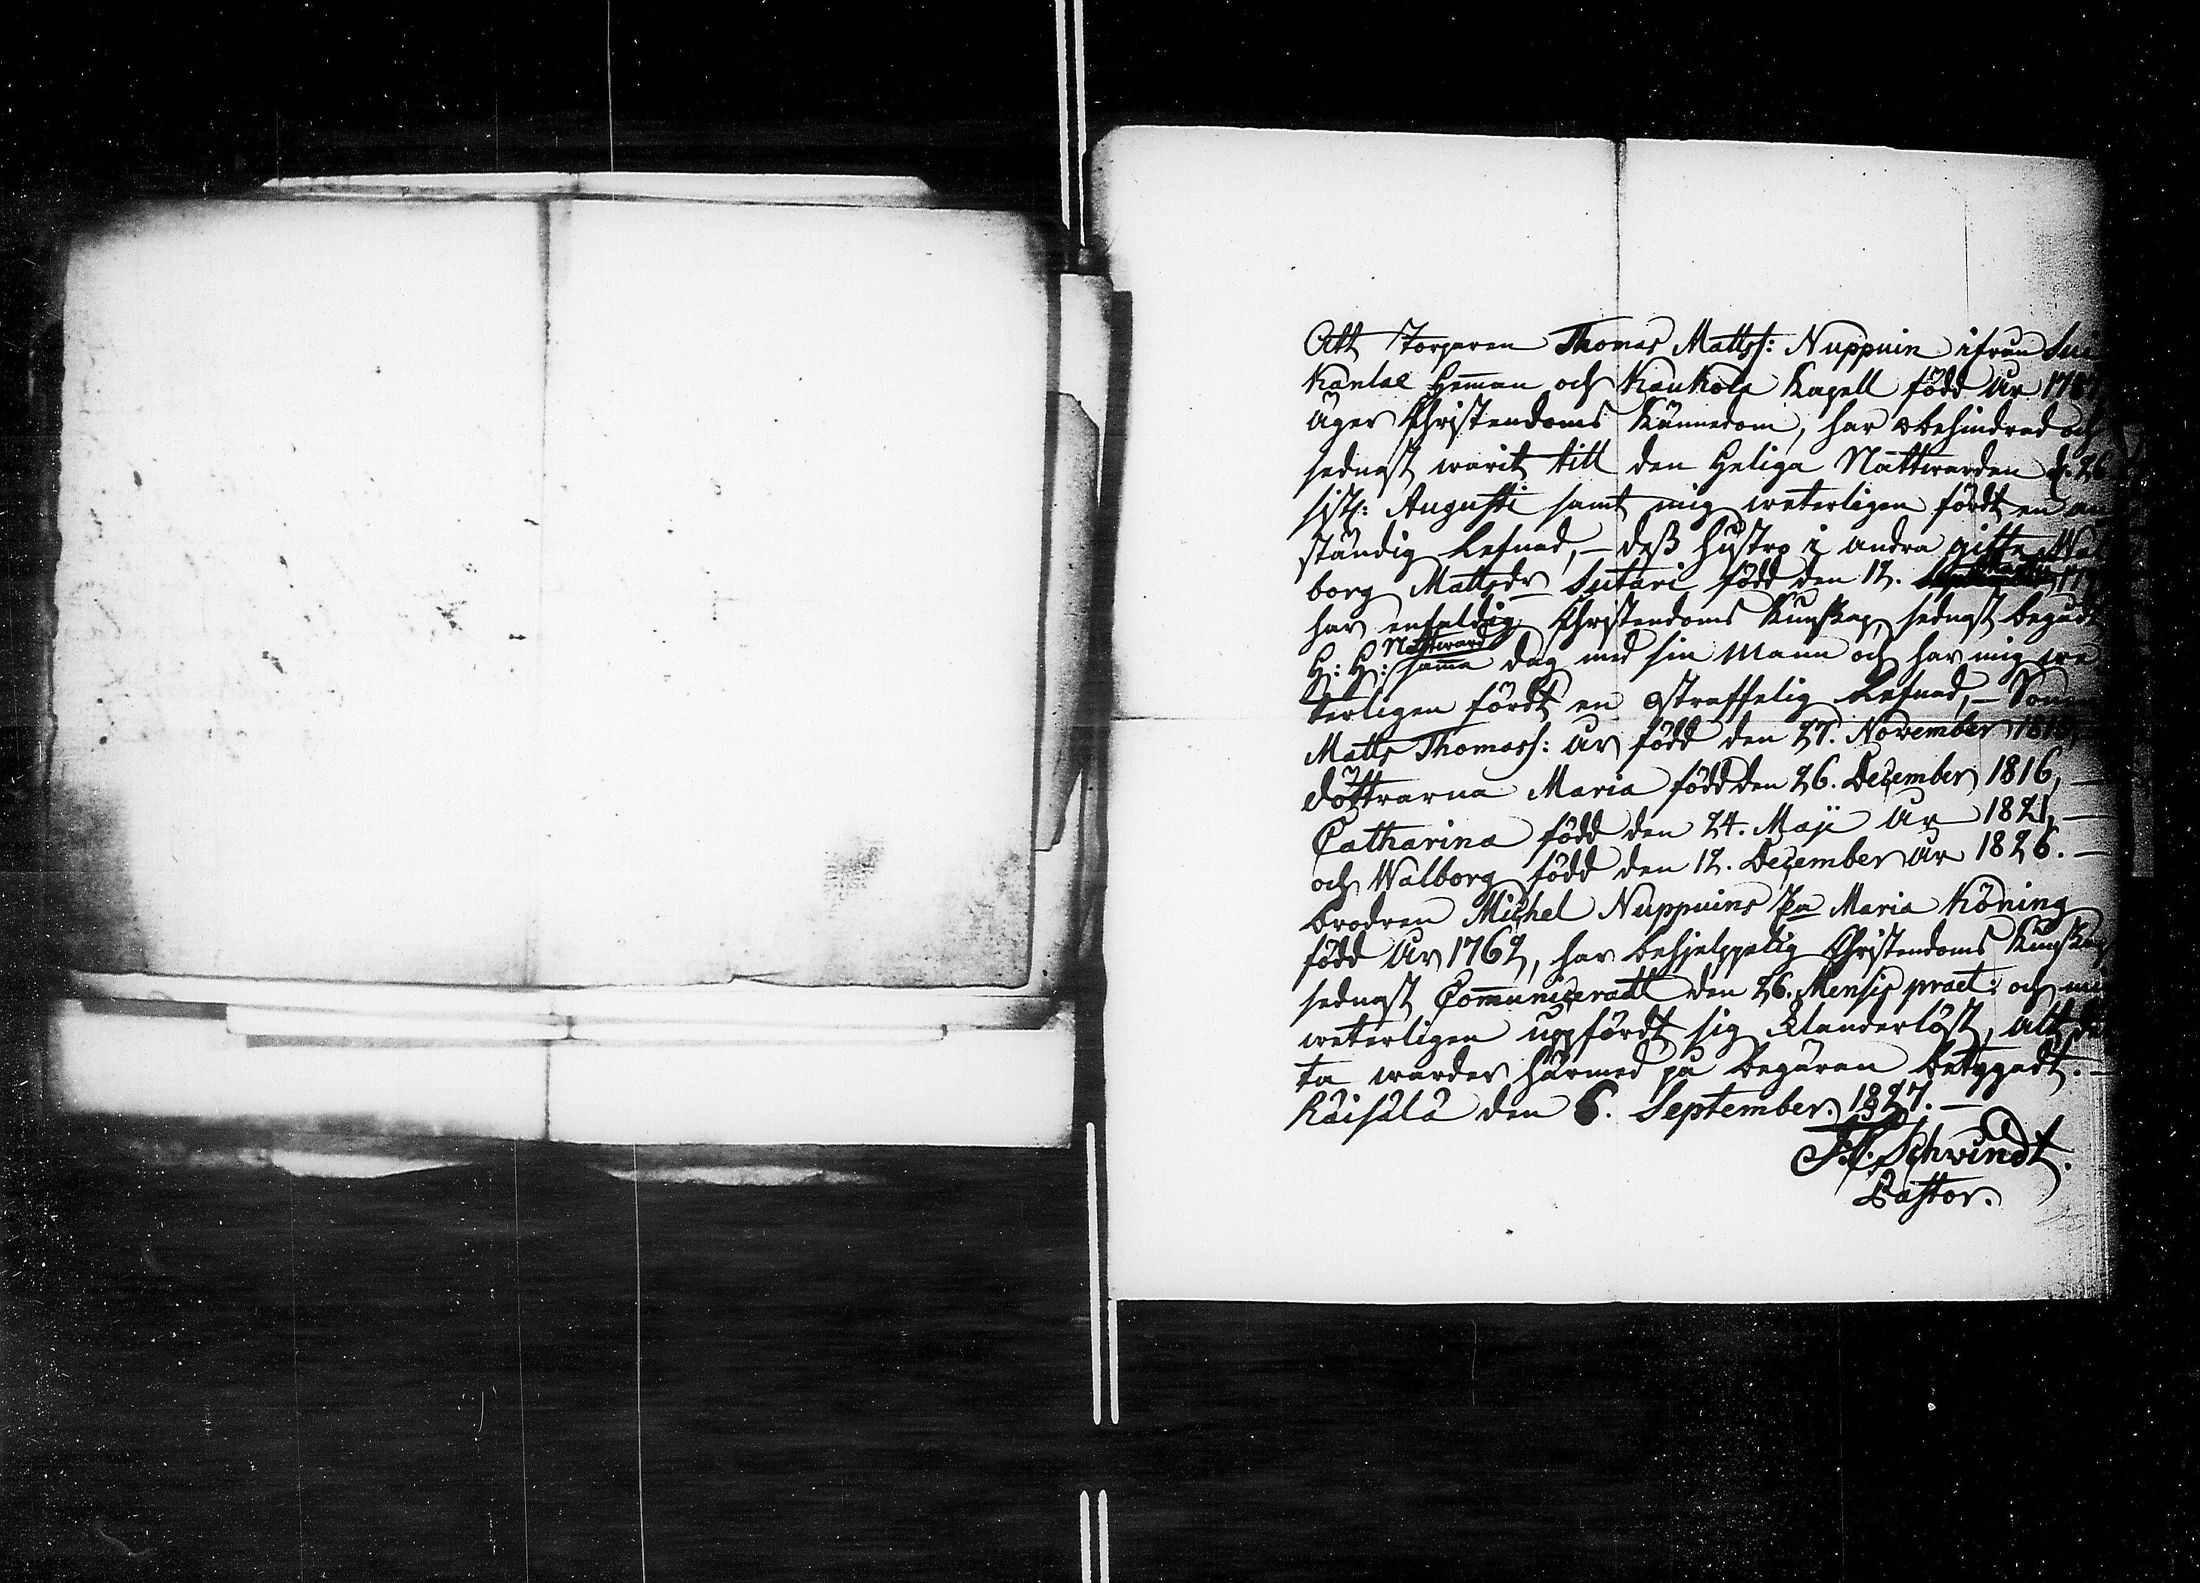 Att Torparen Thomas Mattss: Nuppuin ifrån
Kanlae Heman och Kaukola Kapell född år 178
äger Christendoms Kännedom, har obehindrad och
sednast warit till den Heliga Nattwarden d. 26
sistl: Augusti samt mig weterligen fördt en an
ständig Lefnad, — dess hustro i andra gifte Wal
borg Mattsdr Sutari född den 12.
har enfaldig Christendoms Kunskap, sednast begådt
H: H: Nattward samma dag med sin Mann och har mig we
terligen fördt en ostraffelig Lefnad, — Sonen
Matts Thomass: är född den 27. November
döttrarna Maria född den 26. December 1816, —
Catharina född den 24. Maji år 1821, —
och Walborg född den 12. December år 1826. —
brodren Michel Nuppuins Ea Maria Köning
född år 1762, har behjelppelig Christendoms Kunskap
sednast Communiceradt den 26. Mensis praet: och mig
weterligen uppfördt sig klanderlöst, alt det
ta warder härmed på begäran betygadt. —
Räisälä den 6. September 1827. —
Schvindt.
Pastor.